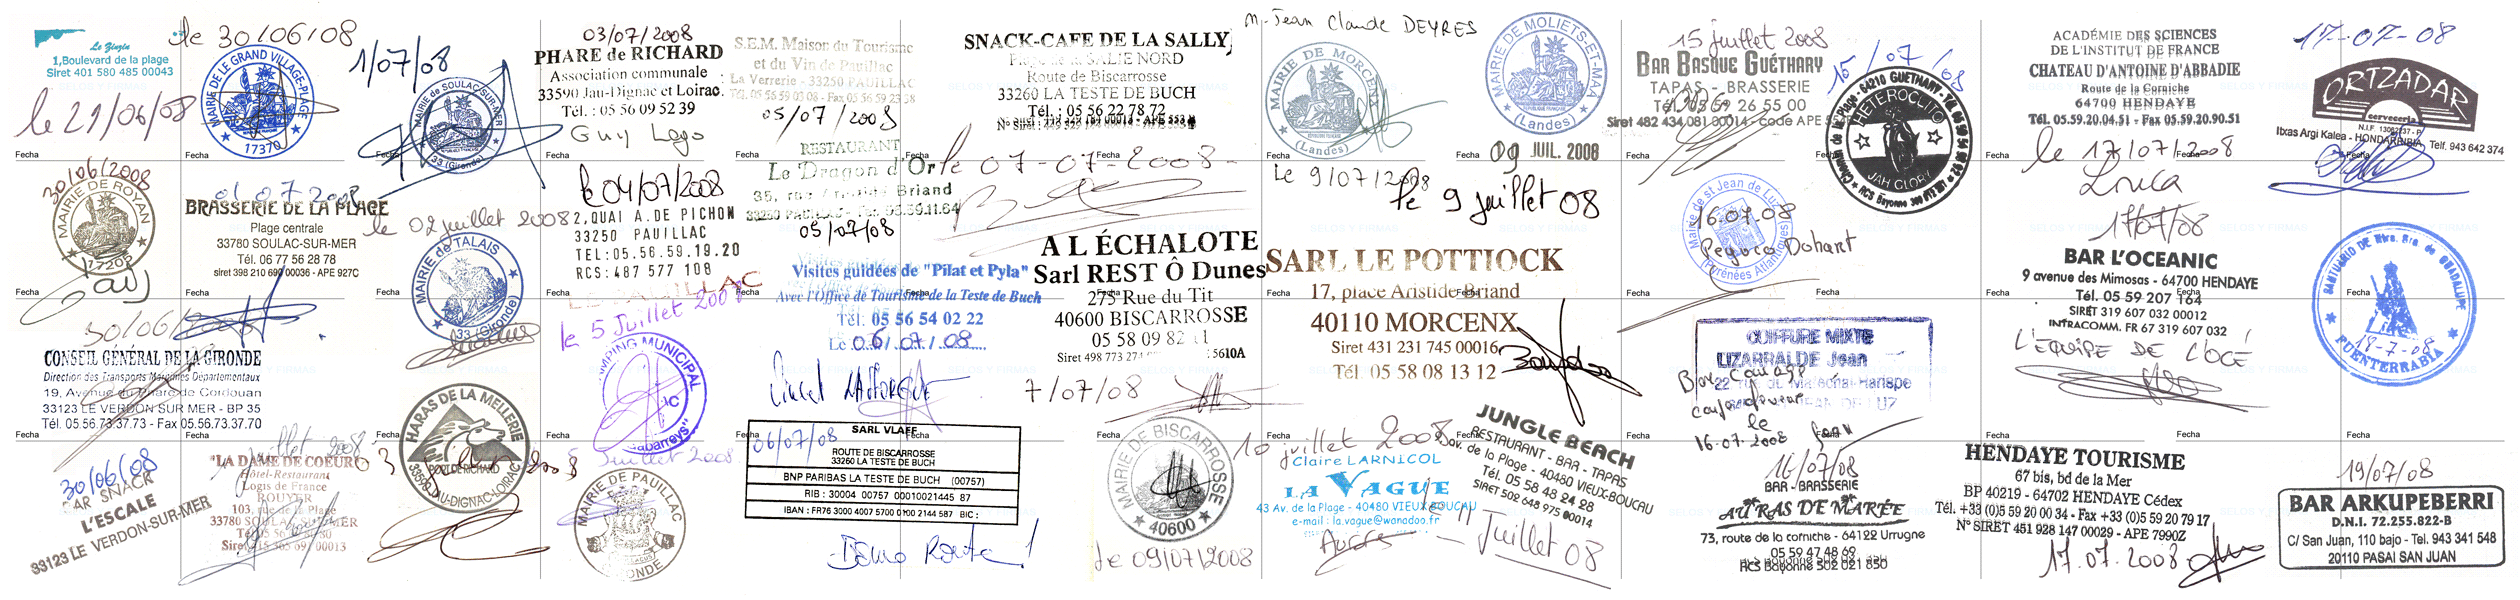 Le Zinzin
1,Boulevard de la plage
Siret 401 580 485 00043
le 29/06/08
Fecha
30/06/2008
MAIRIE DE ROYAN
17205
Fecha
30/06/2008
CONSEIL GÉNÉRAL DE LA GIRONDE
Direction des Transports Maritimes Départementaux
19, Avenue du Phare de Cordouan
33123 LE VERDON SUR MER - BP 35
Tél. 05.56.73.37.73 - Fax 05.56.73.37.70
Fecha
30/06/08
BAR SNACK
L'ESCALE
33123 LE VERDON-SUR-MER
le 30/06/08
MAIRIE DE LE GRAND VILLAGE-PLAGE
17370
Fecha
01 07 2008
BRASSERIE DE LA PLAGE
Plage centrale
33780 SOULAC-SUR-MER
Tél. 06 77 56 28 78
siret 398 210 690 00036 - APE 927C
Fecha
Fecha
juillet 2008
"LA DAME DE COEUR"
Hôtel-Restaurant
Logis de France
ROUYER
103, rue de la Plage
33780 SOULAC/MER
1/07/08
MAIRIE de SOULAC/SUR/MER
33 (Gironde)
Fecha
le 02 juillet 2008
MAIRIE de TALAIS
33 (Gironde)
Fecha
HARAS DE LA MELLERIE
PORT DE RICHARD
33590 JAU-DIGNAC-LOIRAC
Fecha
03/07/2008
PHARE de RICHARD
Association communale
33590 Jau-Dignac et Loirac
Tél. : 05 56 09 52 39
Guy Lago
Fecha
le 04/07/2008
2,QUAI A.DE PICHON
33250 PAUILLAC
TEL:05.56.59.19.20
RCS:487 577 108
Fecha
PAUILLAC
le 5 Juillet 2008
CAMPING MUNICIPAL
"Gabarreys"
Fecha
5 Juillet 2008
MAIRIE DE PAUILLAC
GIRONDE
S.E.M. Maison du Tourisme
et du Vin de Pauillac
La Verrerie - 33250 PAUILLAC
Tél. 05 56 59 03 08 - Fax 05 56 59 23 38
05/07/2008
Fecha
RESTAURANT
Le Dragon d'Or
35, rue Aristide Briand
33250 PAUILLAC
05/07/08
Fecha
Visites guidées de "Pilat et Pyla"
Avec l'Office de Tourisme de la Teste de Buch
Tél: 05 56 54 02 22
Le 06/07/08
Fecha
06/07/08
SARL VLAFF
ROUTE DE BISCARROSSE
33260 LA TESTE DE BUCH
BNP PARIBAS LA TESTE DE BUCH (00757)
RIB : 30004 00757 00010021445 87
IBAN : FR76 3000 4007 5700 0100 2144 587 BIC :
Bonne Route !
SNACK-CAFE DE LA SALLY
Plage de la SALIE NORD
Route de Biscarrosse
33260 LA TESTE DE BUCH
Tél. : 05 56 22 78 72
Fecha
le 07-07-2008
Fecha
A L'ÉCHALOTE
Sarl REST Ô Dunes
275 Rue du Tit
40600 BISCARROSSE
7/07/08
Fecha
MAIRIE DE BISCARROSSE
40600
le 09/07/2008
M. Jean Claude DEYRES
MAIRIE DE MORCENX
(Landes)
Fecha
Le 9/07/2008
SARL LE POTTIOCK
17, place Aristide Briand
40110 MORCENX
Siret 431 231 745 00016
Tél. 05 58 08 13 12
Fecha
10 juillet 2008
Claire LARNICOL
LA VAGUE
43 Av. de la Plage - 40480 VIEUX BOUCAU
e-mail : la.vague@wanadoo.fr
MAIRIE DE MOLIETS-ET-MAA
(Landes)
09 JUIL. 2008
Fecha
le 9 juillet 08
Fecha
JUNGLE BEACH
RESTAURANT - BAR - TAPAS
av. de la Plage - 40480 VIEUX-BOUCAU
Tél. 05 58 48 24 28
SIRET 502 648 975 00014
le 11 Juillet 08
15 juillet 2008
BAR BASQUE GUÉTHARY
TAPAS - BRASSERIE
Tél. 05 59 26 55 00
Siret 482 434 081 00014 - code APE
Fecha
Mairie de St Jean de Luz
(Pyrénées Atlantiques)
16.07.08
Peyoco Dohart
Fecha
COIFFURE MIXTE
LIZARRALDE Jean
16.07.2008
Fecha
16/07/08
BAR - BRASSERIE
AU RAS DE MARÉE
73, route de la corniche - 64122 Urrugne
05 59 47 48 69
RCS Bayonne 502 021 850
15/07/08
HETEROCLITO
Chemin de la Plage - 64210 GUETHARY - Tél. 05 59 54 98 92
RCS Bayonne
JAH GLORY
Fecha
Fecha
ACADÉMIE DES SCIENCES
DE L'INSTITUT DE FRANCE
CHATEAU D'ANTOINE D'ABBADIE
Route de la Corniche
64700 HENDAYE
Tél. 05.59.20.04.51 - Fax 05.59.20.90.51
le 17/07/2008
Fecha
17/07/08
BAR L'OCEANIC
9 avenue des Mimosas - 64700 HENDAYE
Tél. 05 59 207 164
SIRET 319 607 032 00012
INTRACOMM. FR 67 319 607 032
L'EQUIPE DE L'OCE
Fecha
HENDAYE TOURISME
67 bis, bd de la Mer
BP 40219 - 64702 HENDAYE Cédex
Tél. +33 (0)5 59 20 00 34 - Fax +33 (0)5 59 20 79 17
N° SIRET 451 928 147 00029 - APE 7990Z
17.07.2008
17-07-08
ORTZADAR
cervecería
Itxas Argi Kalea - HONDARRIBIA
Telf. 943 642 374
Fecha
SANTUARIO DE Ntra. Sra. de GUADALUPE
18-7-08
FUENTERRABIA
Fecha
19/07/08
BAR ARKUPEBERRI
D.N.I. 72.255.822-B
C/ San Juan, 110 bajo - Tel. 943 341 548
20110 PASAI SAN JUAN